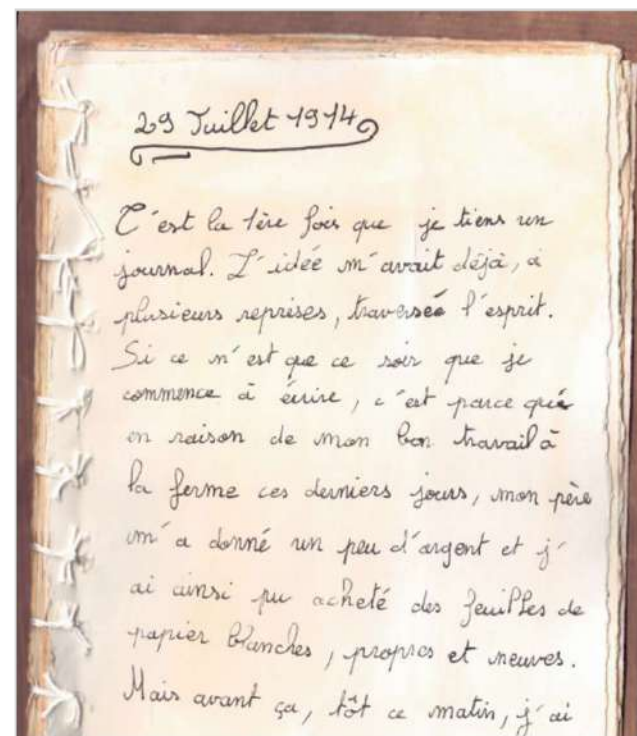 29 Juillet 1914
C'est la 1ère fois que je tiens un
journal. L'idée m'avait déjà, à
plusieurs reprises, traversée l'esprit.
Si ce n'est que ce soir que je
commence à écrire, c'est parce que
en raison de mon bon travail à
la ferme ces derniers jours, mon père
m'a donné un peu d'argent et j'
ai ainsi pu acheté des feuilles de
papier blanches, propres et neuves.
Mais avant ça, tôt ce matin, j'ai